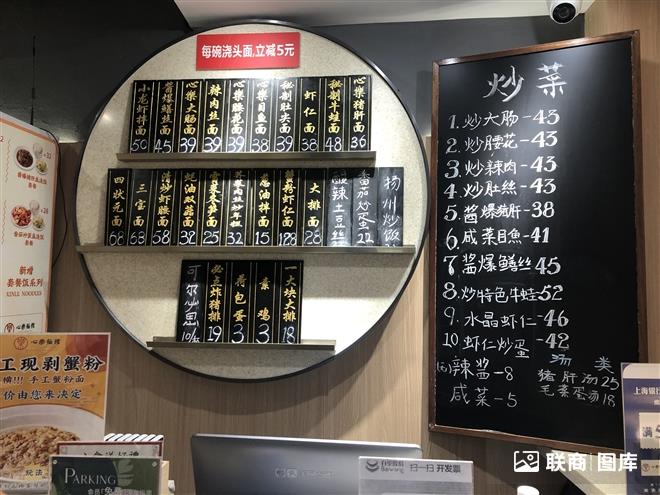 每碗浇头面,立减5元
小龙虾拌面 50
酱爆鳝丝面 45
心乐大肠面 39
辣肉丝面 39
心乐腰花面 39
心乐目鱼面 38
秘制肚尖面 39
虾仁面 38
秘制牛蛙面 48
心乐猪肝面 36
四状元面 68
三宝面 63
清炒虾腰面 58
蚝油双菇面 32
雪菜冬笋面 25
32
葱油拌面 15
蟹粉虾仁面 128
大排面 28
酸辣土豆丝
番茄炒蛋 22
扬州炒饭
可尔必思 10/
必点炸猪排 19
荷包蛋 3
素鸡 3
一大块大排 18
炒菜
1.炒大肠-43
2.炒腰花-43
3.炒辣肉-43
4.炒肚丝-43
5.酱爆猪肝-38
6.咸菜目鱼-41
7.酱爆鳝丝45
8.炒特色牛蛙52
9.水晶虾仁-46
10.虾仁炒蛋-42
辣酱-8
咸菜-5
汤类
猪肝汤25
毛菜蛋汤18
新增
套餐饭系列
XINLE NOODLES
心乐面馆
工现剥蟹粉
手工蟹粉面
价由您来决定
玩法
PARKING
扫一扫 开发票
上海银行
联商 图库